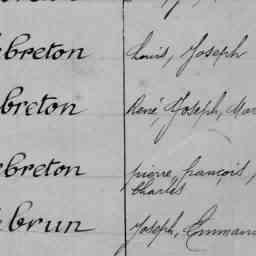 breton Louis, Joseph
breton René, Joseph, Mar
breton pierre, françois,
Charles
brun Joseph, Emman